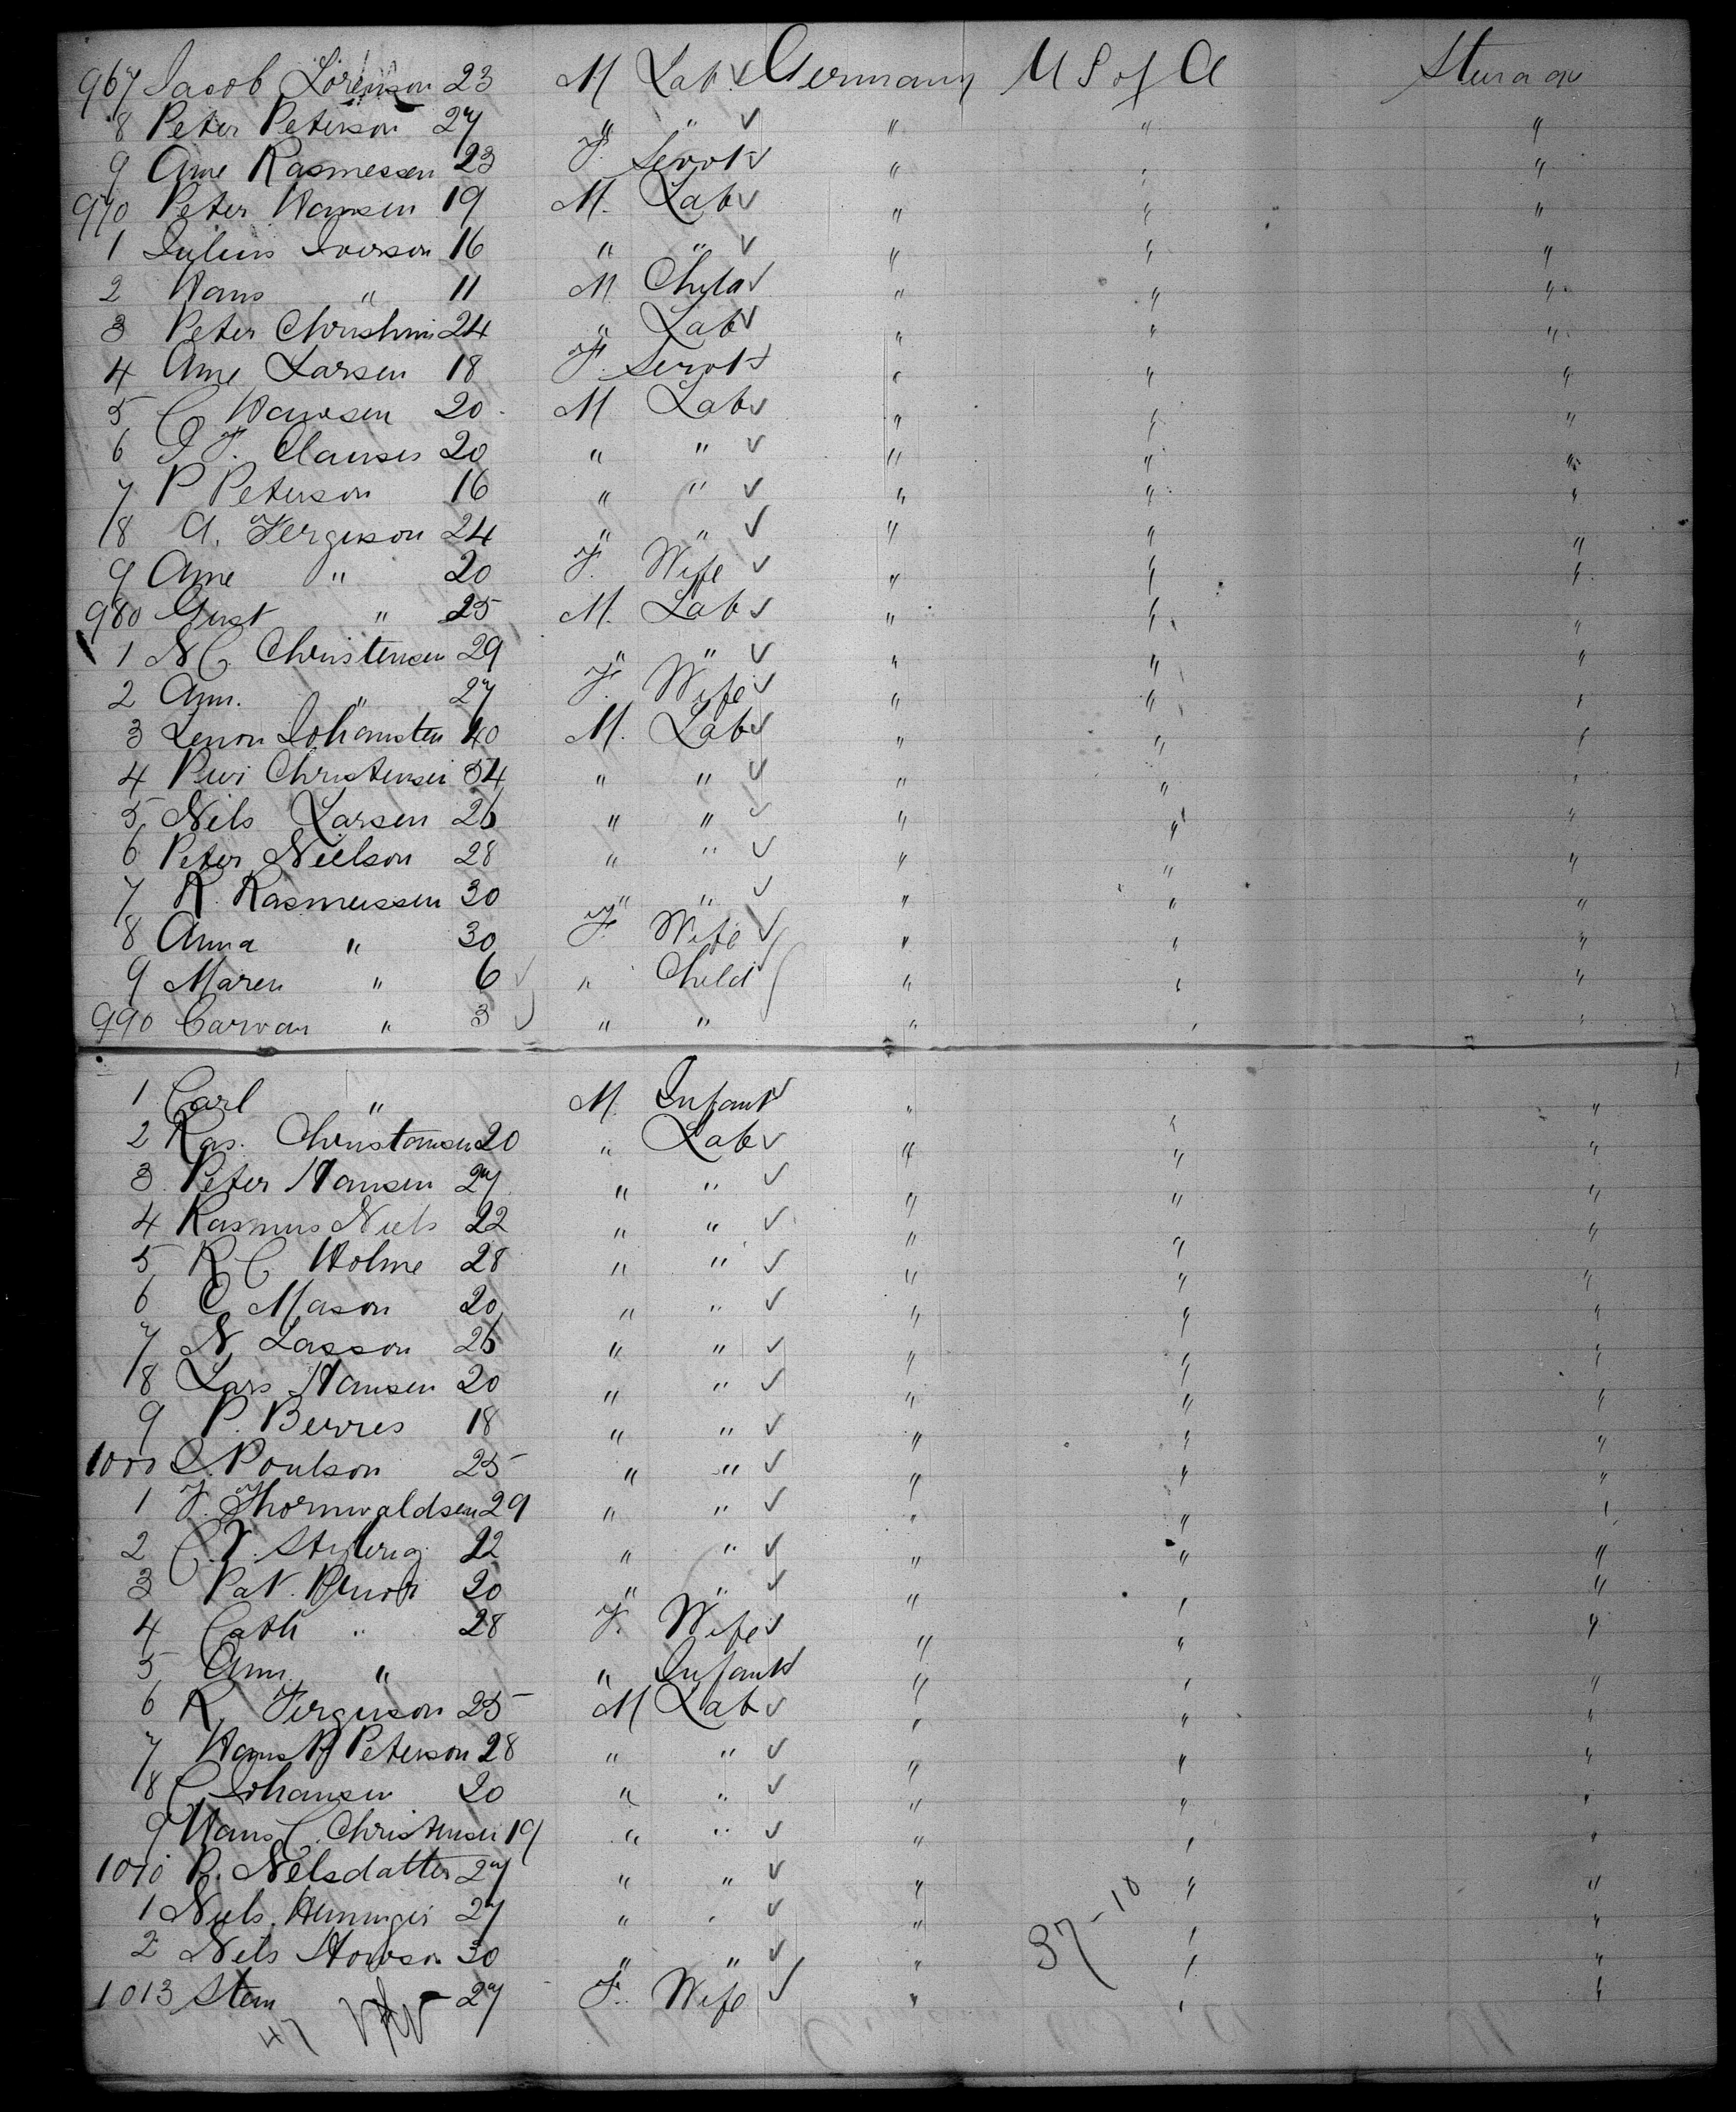 967 Jacob Lorenson 23 M Lab ✓ Germany U S of A Steerage
8 Peter Peterson 27 " " ✓ " " "
9 Ane Rasmessen 23 F. Servt ✓ " " "
970 Peter Hansen 19 M. Lab ✓ " " "
1 Julius Iverson 16 " " ✓ " " "
2 Hans " 11 M Chyld ✓ " " "
3 Peter 24 " Lab ✓ " " "
4 Ane Larsen 18 F. Servt ✓ " " "
5 C Hansen 20 M Lab ✓ " " "
6 F. Clausen 20 " " ✓ " " "
7 P Peterson 16 " " ✓ " " "
8 A. Ferguson 24 " " ✓ " " "
9 Ane " 20 F. Wife ✓ " " "
980 Gust " 25 M. Lab ✓ " " "
1 N C. Christensen 29 " " ✓ " " "
2 Ann. " 27 F. Wife ✓ " " "
3 40 M. Lab ✓ " " "
4 Christensen 34 " " ✓ " " "
5 Nils Larsen 26 " " ✓ " " "
6 Peter Nielson 28 " " ✓ " " "
7 R. Rasmussen 30 " " ✓ " " "
8 Anna " 30 F. Wife ✓ " " "
9 Maren " 6 ✓ " Child ✓ " " "
990 " 3 ✓ " " " " "
1 Carl " M. Infant ✓ " " "
2 Ras. Christansen 20 " Lab ✓ " " "
3 Peter Hansen 27 " " ✓ " " "
4 Rasmus Niels 22 " " ✓ " " "
5 R C. Holme 28 " " ✓ " " "
6 C Mason 20 " " ✓ " " "
7 N. Lasson 26 " " ✓ " " "
8 Lars Hansen 20 " " ✓ " " "
9 P. Berres 18 " " ✓ " " "
1000 Poulson 25 " " ✓ " " "
1 F. Thornwaldsen 29 " " ✓ " " "
2 C. 22 " " ✓ " " "
3 Pat. 20 " " ✓ " " "
4 Cath " 28 F. Wife ✓ " " "
5 Ann " " Infant ✓ " " "
6 R. Ferguson 25 M Lab ✓ " " "
7 Hans Peterson 28 " " ✓ " " "
8 C. Johansen 20 " " ✓ " " "
9 Hans C. Christensen 19 " " ✓ " " "
1010 Nelsdatter 27 " " ✓ " " "
1 Niels 27 " " ✓ " " "
2 Nels 30 " " ✓ " 37-10 " "
1013 27 F. Wife ✓ " " "
47